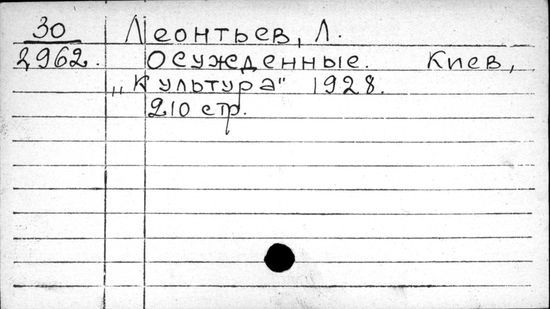 30 Леонтьев, Л.
2962. Осужденные. Киев,
„Культура" 1928.
210 стр.